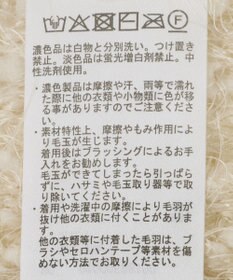 濃色品は白物と分別洗い。つけ置き
禁止。淡色品は蛍光増白剤禁止。中
性洗剤使用。
・濃色製品は摩擦や汗、雨等で濡れ
た際に他の衣類や小物類に色が移
る事がありますのでご注意くださ
い。
・素材特性上、摩擦やもみ作用によ
り毛玉が生じます。
着用後はブラッシングによるお手
入れをお勧めします。
毛玉ができてしまったら引っぱら
ずに、ハサミや毛玉取り器等で取
り除いてください。
・着用や洗濯中の摩擦により毛羽が
抜けて他の衣類に付くことがありま
す。
他の衣類等に付着した毛羽は、ブ
ラシやセロハンテープ等素材を傷
めない方法でお取りください。